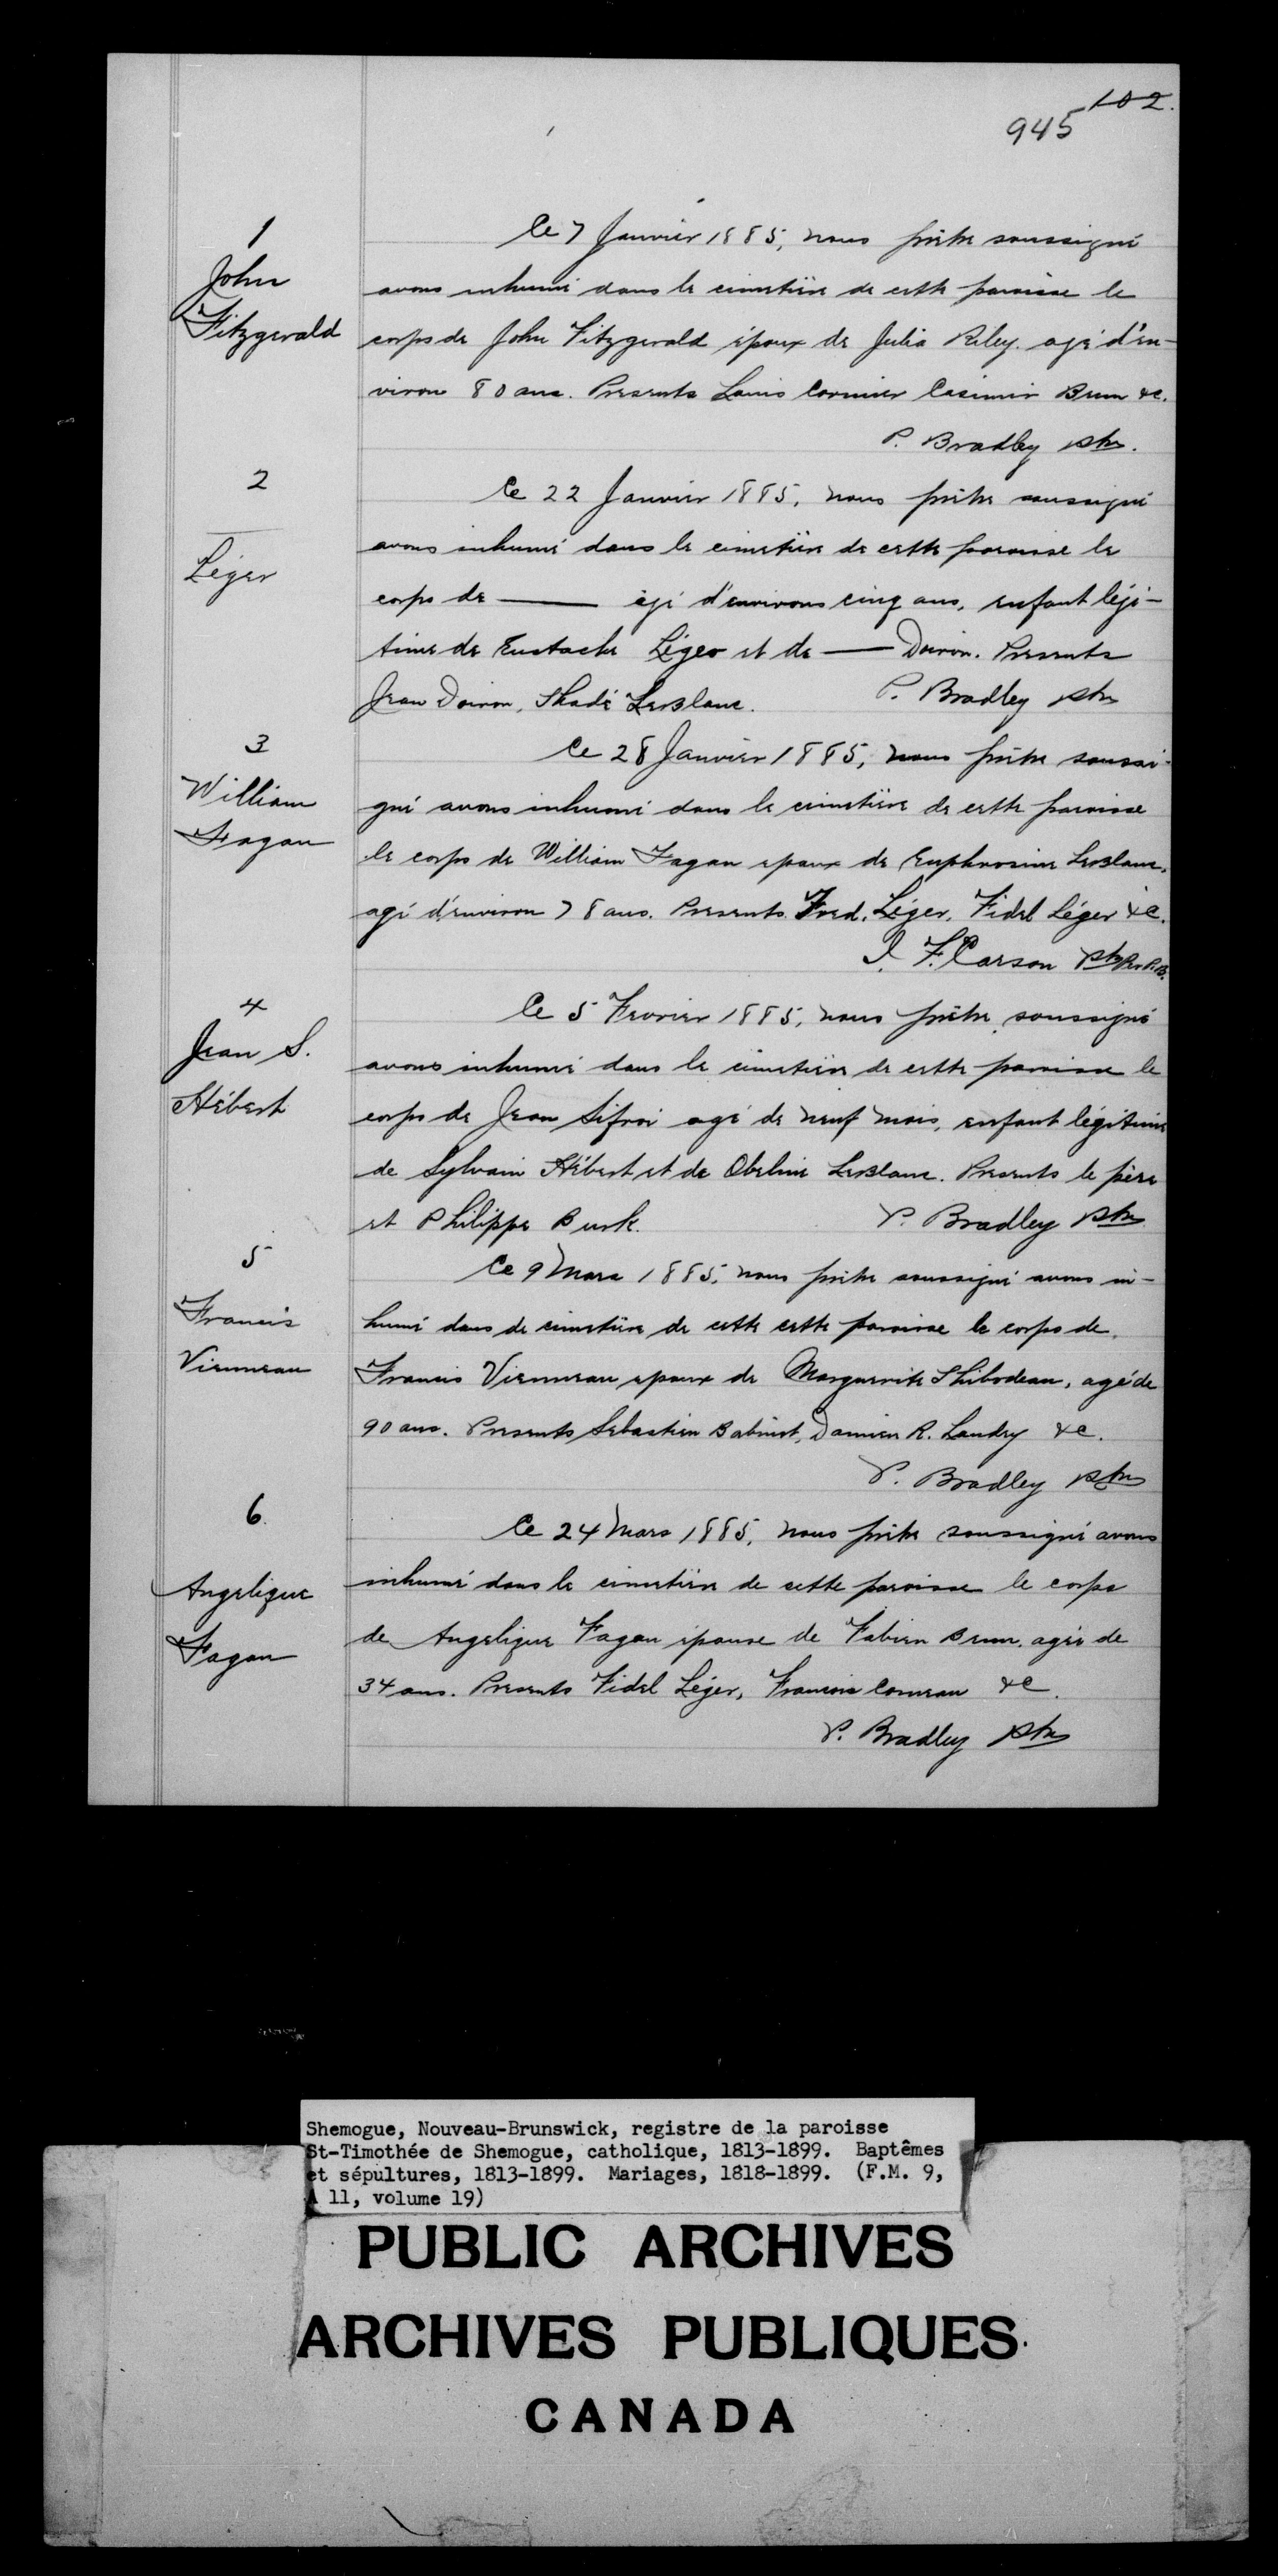 102.
945
1
John
Fitzgerald
Ce 7 Janvier 1885, nous prêtre soussigné
avons inhumé dans le cimetière de cette paroisse le
corps de John Fitzgerald époux de Julia Riley. agé d'en-
viron 80 ans. Presents Louis Cormier Casimir Brun &c.
P. Bradley ptre.
2
Léger
Ce 22 Janvier 1885, nous prêtre soussigné
avons inhumé dans le cimetière de cette paroisse le
corps de —— agé d'environs cinq ans, enfant légi-
time de Eustache Léger et de —— Doiron. Presents
Jean Doiron, Thadé LeBlanc. P. Bradley ptre
3
William
Fagan
Ce 28 Janvier 1885, nous prêtre soussi-
gné avons inhumé dans le cimetière de cette paroisse
le corps de William Fagan epoux de Euphrosine LeBlanc,
agé d'environ 78 ans. Presents Fred. Léger, Fidel Léger &c.
F. Carson ptre
4
Jean S.
Hébert
Ce 5 Fevrier 1885, nous prêtre soussigné
avons inhumé dans le cimetière de cette paroisse le
corps de Jean Sifroi agé de neuf mois, enfant légitime
de Sylvain Hébert et de Obeline LeBlanc. Presents le père
et Philippe Burk. P. Bradley ptre
5
Francis
Vienneau
Ce 9 Mars 1885, nous prêtre soussigné avons in-
humé dans de cimetière de cette cette paroisse le corps de
Francis Vienneau epoux de Marguerite Thibodeau, agé de
90 ans. Presents Sebastien Babinot, Damien R. Landry &c.
P. Bradley ptre
6
Angelique
Fagan
Ce 24 Mars 1885, nous prêtre soussigné avons
inhumé dans le cimetière de cette paroisse le corps
de Angelique Fagan épouse de Fabien Brun, agée de
34 ans. Presents Fidel Léger, Francois Comeau &c.
P. Bradley ptre
Shemogue, Nouveau-Brunswick, registre de la paroisse
St-Timothée de Shemogue, catholique, 1813-1899. Baptêmes
et sépultures, 1813-1899. Mariages, 1818-1899. (F.M. 9,
A 11, volume 19)
PUBLIC ARCHIVES
ARCHIVES PUBLIQUES
CANADA